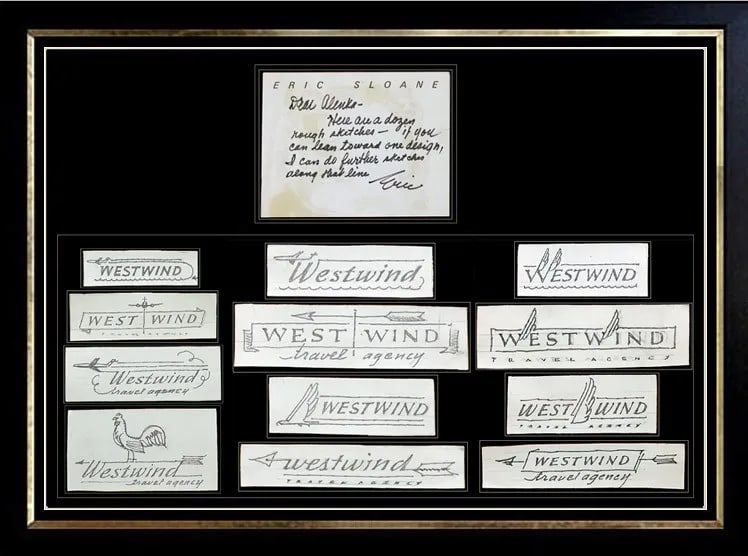 ERIC SLOANE
Dear Alenko-
Here are a dozen
rough sketches — if you
can lean toward one design,
I can do further sketches
along that line
Eric
WESTWIND
WEST WIND
TRAVEL AGENCY
Westwind
travel agency
Westwind
travel agency
Westwind
WEST WIND
travel agency
WESTWIND
westwind
TRAVEL AGENCY
WESTWIND
WESTWIND
TRAVEL AGENCY
WEST WIND
TRAVEL AGENCY
WESTWIND
travel agency